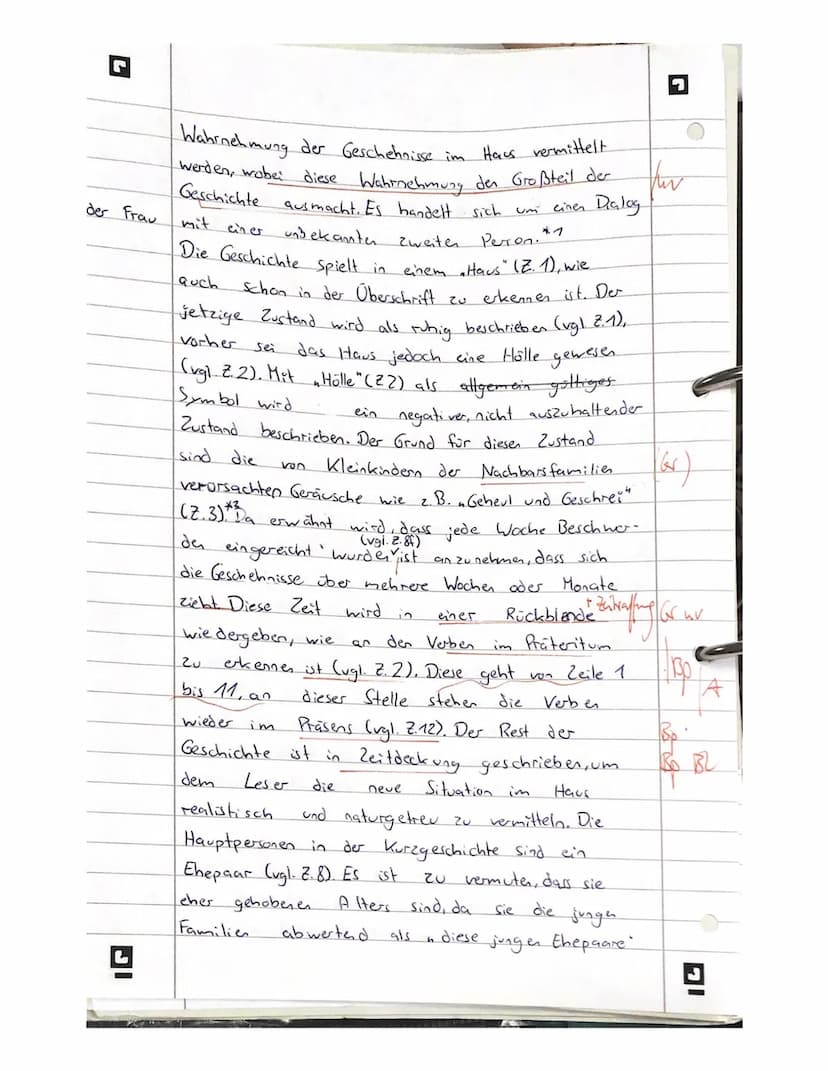 Wahrnehmung der Geschehnisse im Haus vermittelt
werden, wobei diese Wahrnehmung den Großteil der
Geschichte ausmacht. Es handelt sich um einen Dialog
der Frau
mit einer unbekannten zweiten Person.*1
Die Geschichte spielt in einem „Haus" (Z.1), wie
auch schon in der Überschrift zu erkennen ist. Der
jetzige Zustand wird als ruhig beschrieben (vgl Z.1),
vorher sei das Haus jedoch eine Hölle gewesen
(vgl. Z.2). Mit „Hölle" (Z2) als allgemein gültiges
Symbol wird ein negativer, nicht auszuhaltender
Zustand beschrieben. Der Grund für diesen Zustand
sind die von Kleinkindern der Nachbarsfamilien
(Gr)
verursachten Geräusche wie z.B. „Geheul und Geschrei"
(Z.3).*2 Da erwähnt wird, dass jede Woche Beschwer-
(vgl. Z.8f)
den eingereicht wurden ist anzunehmen, dass sich
die Geschehnisse über mehrere Wochen oder Monate
zieht. Diese Zeit wird in einer Rückblende
+ Zeitraffung Gr
wiedergeben, wie an den Verben im Präteritum
zu erkennen ist (vgl. Z.2). Diese geht von Zeile 1
Bp
bis 11, an dieser Stelle stehen die Verben
A
wieder im Präsens (vgl. Z.12). Der Rest der
Bp
Geschichte ist in Zeitdeckung geschrieben, um
Bp BZ
dem Leser die neue Situation im Haus
realistisch und naturgetreu zu vermitteln. Die
Hauptpersonen in der Kurzgeschichte sind ein
Ehepaar (vgl. Z.8). Es ist zu vermuten, dass sie
eher gehobenen Alters sind, da sie die jungen
Familien abwertend als „diese jungen Ehepaare"